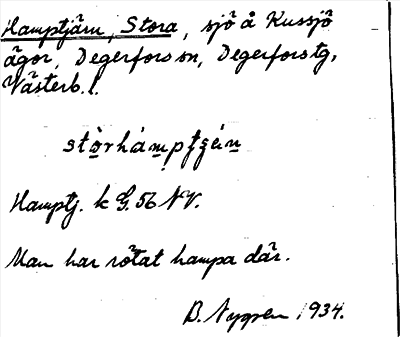 Hamptjärn, Stora, sjö å Kussjö
ägor, Degerfors sn, Degerfors tg,
Västerb. l.
Hamptj. k G. 56 NV.
Man har rötat hampa där.
B. Nygren 1934.